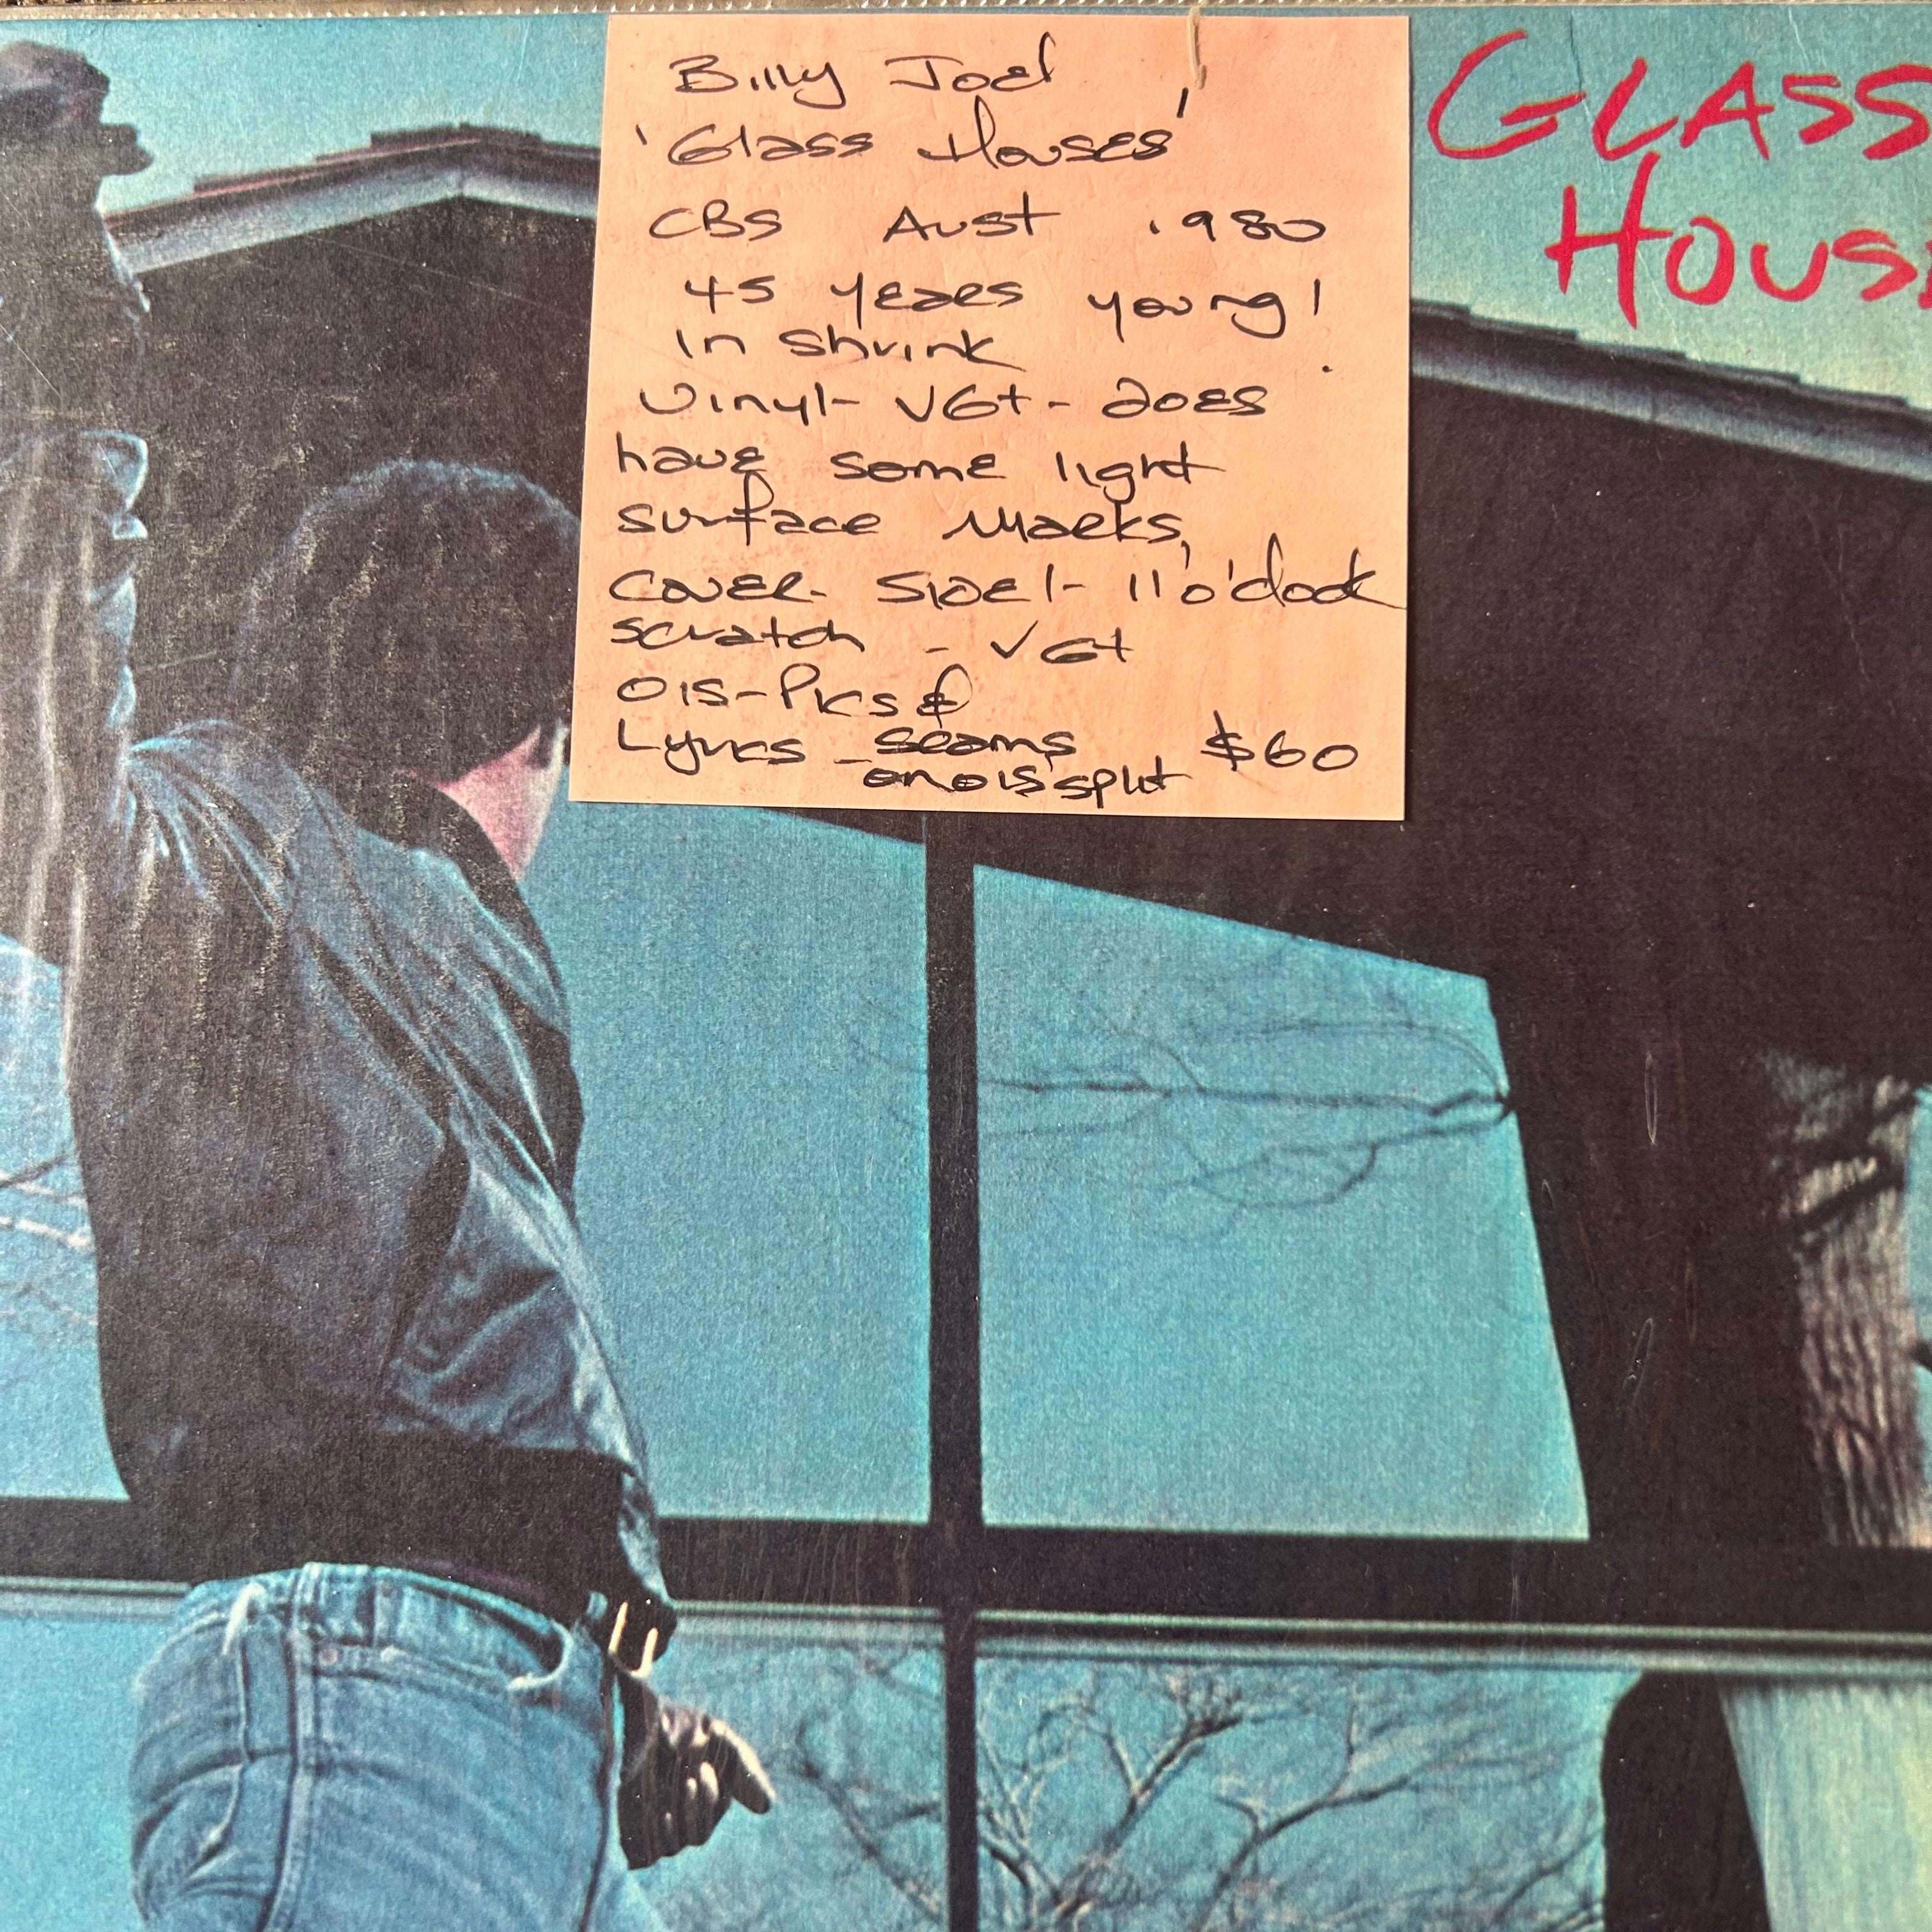 Billy Joel
'Glass Houses'
CBS Aust 1980
45 years young!
in shrink
Vinyl- VG+ - does
have some light
surface marks,
Cover- Side 1- 11 o'clock
scratch - VG+
OIS-Pics &
Lyrics - seams $60
on OIS split
GLASS
HOUSE